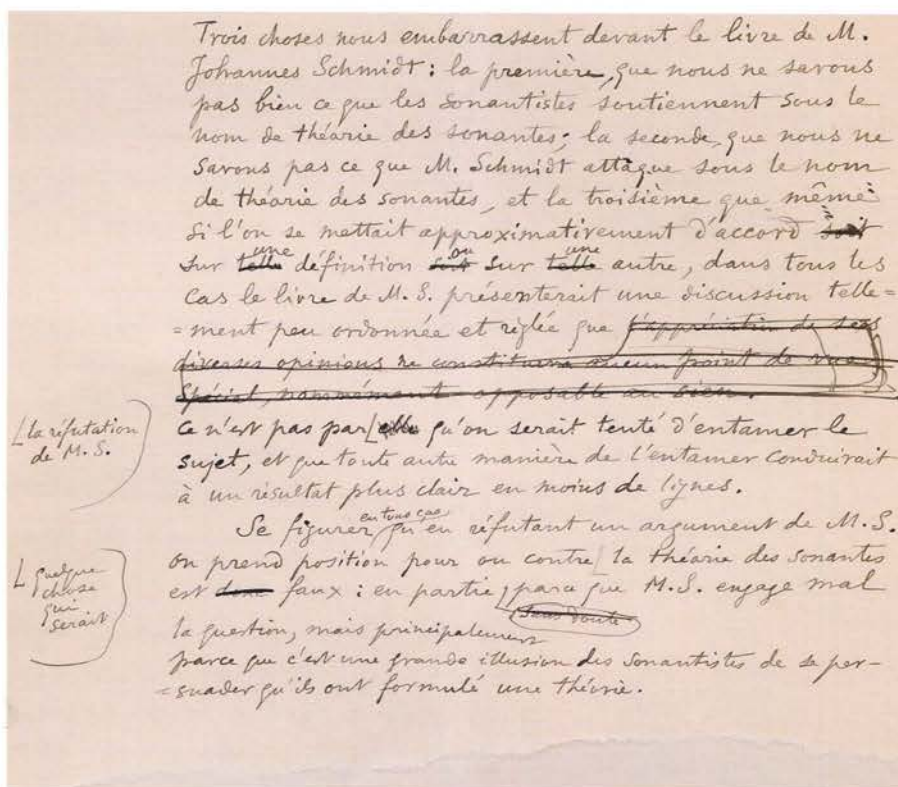 Trois choses nous embarrassent devant le livre de M.
Johannes Schmidt : la première, que nous ne savons
pas bien ce que les sonantistes soutiennent sous le
nom de théorie des sonantes; la seconde, que nous ne
savons pas ce que M. Schmidt attaque sous le nom
de théorie des sonantes, et la troisième que même
si l'on se mettait approximativement d'accord soit
sur telle une définition soit ou sur telle une autre, dans tous les
cas le livre de M. S. présenterait une discussion telle=
=ment peu ordonnée et réglée que l'appréciation de ses
diverses opinions ne constituera aucun point de vue
spécial, nommément opposable au sien.
ce n'est pas par elle qu'on serait tenté d'entamer le
[la réfutation
de M. S.
sujet, et que toute autre manière de l'entamer conduirait
à un résultat plus clair en moins de lignes.
Se figurer en tous cas qu'en réfutant un argument de M. S.
on prend position pour ou contre [ la théorie des sonantes
[quelque
chose
qui
serait
est donc faux : en partie, parce que M. S. engage mal
sans doute
la question, mais principalement
parce que c'est une grande illusion des sonantistes de se per-
=suader qu'ils ont formulé une théorie.